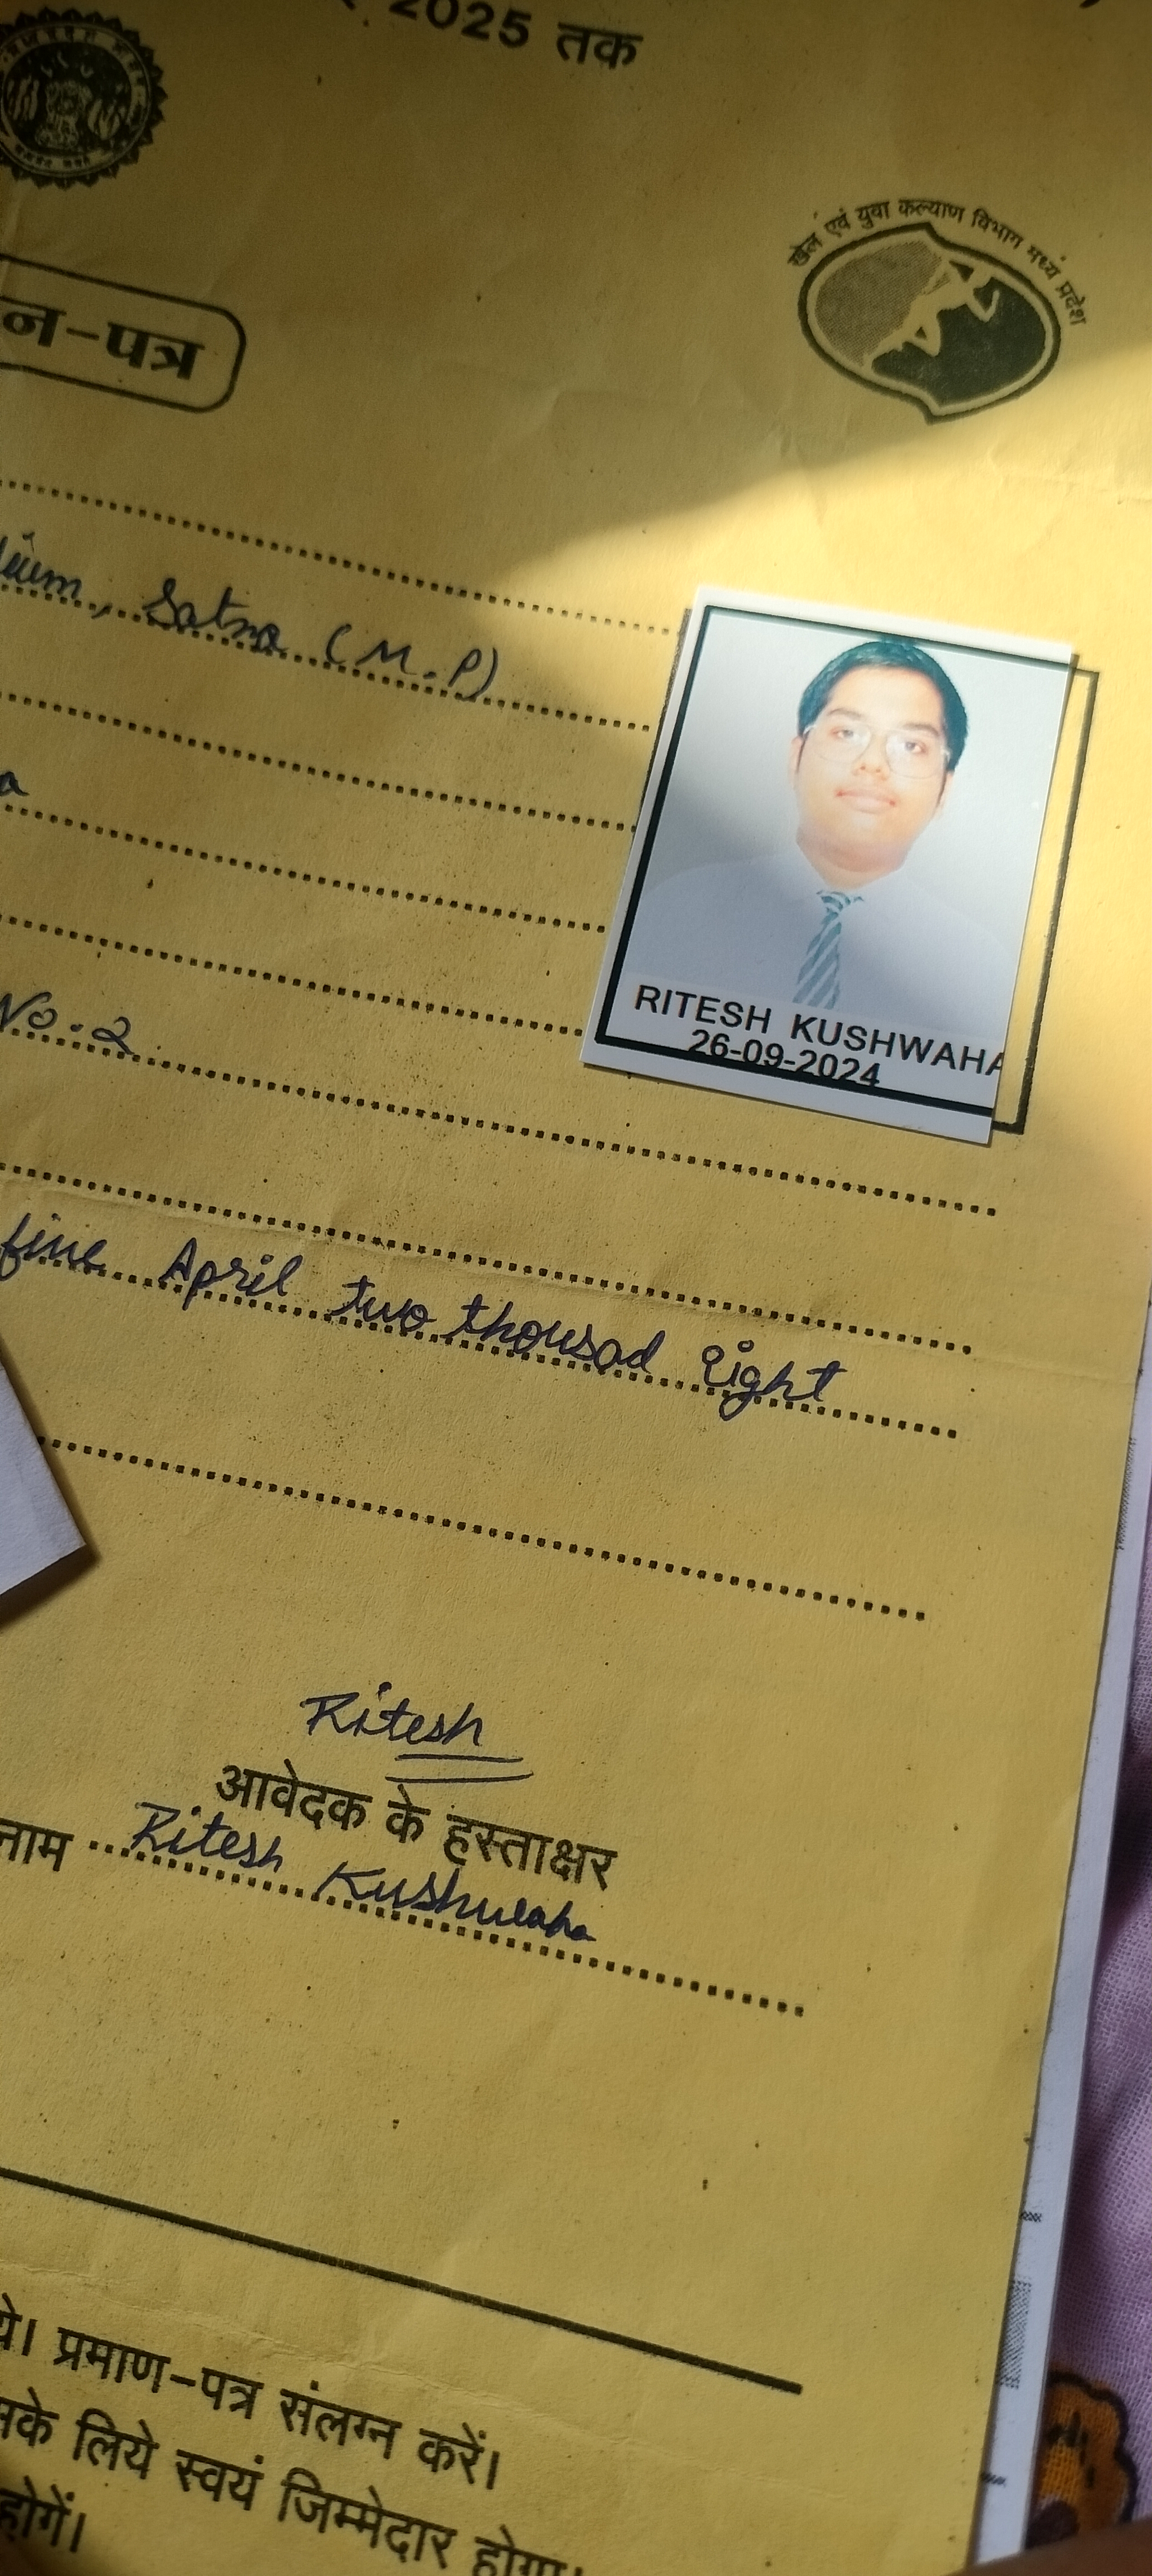 2025 तक
खेल एवं युवा कल्याण विभाग मध्य प्रदेश
न-पत्र
Satna (M.P)
RITESH KUSHWAHA
26-09-2024
No. 2
fine April two thousad Eight
Ritesh
आवेदक के हस्ताक्षर
नाम Ritesh Kushwaha
प्रमाण-पत्र संलग्न करें।
लिये स्वयं जिम्मेदार होगा।
होगें।